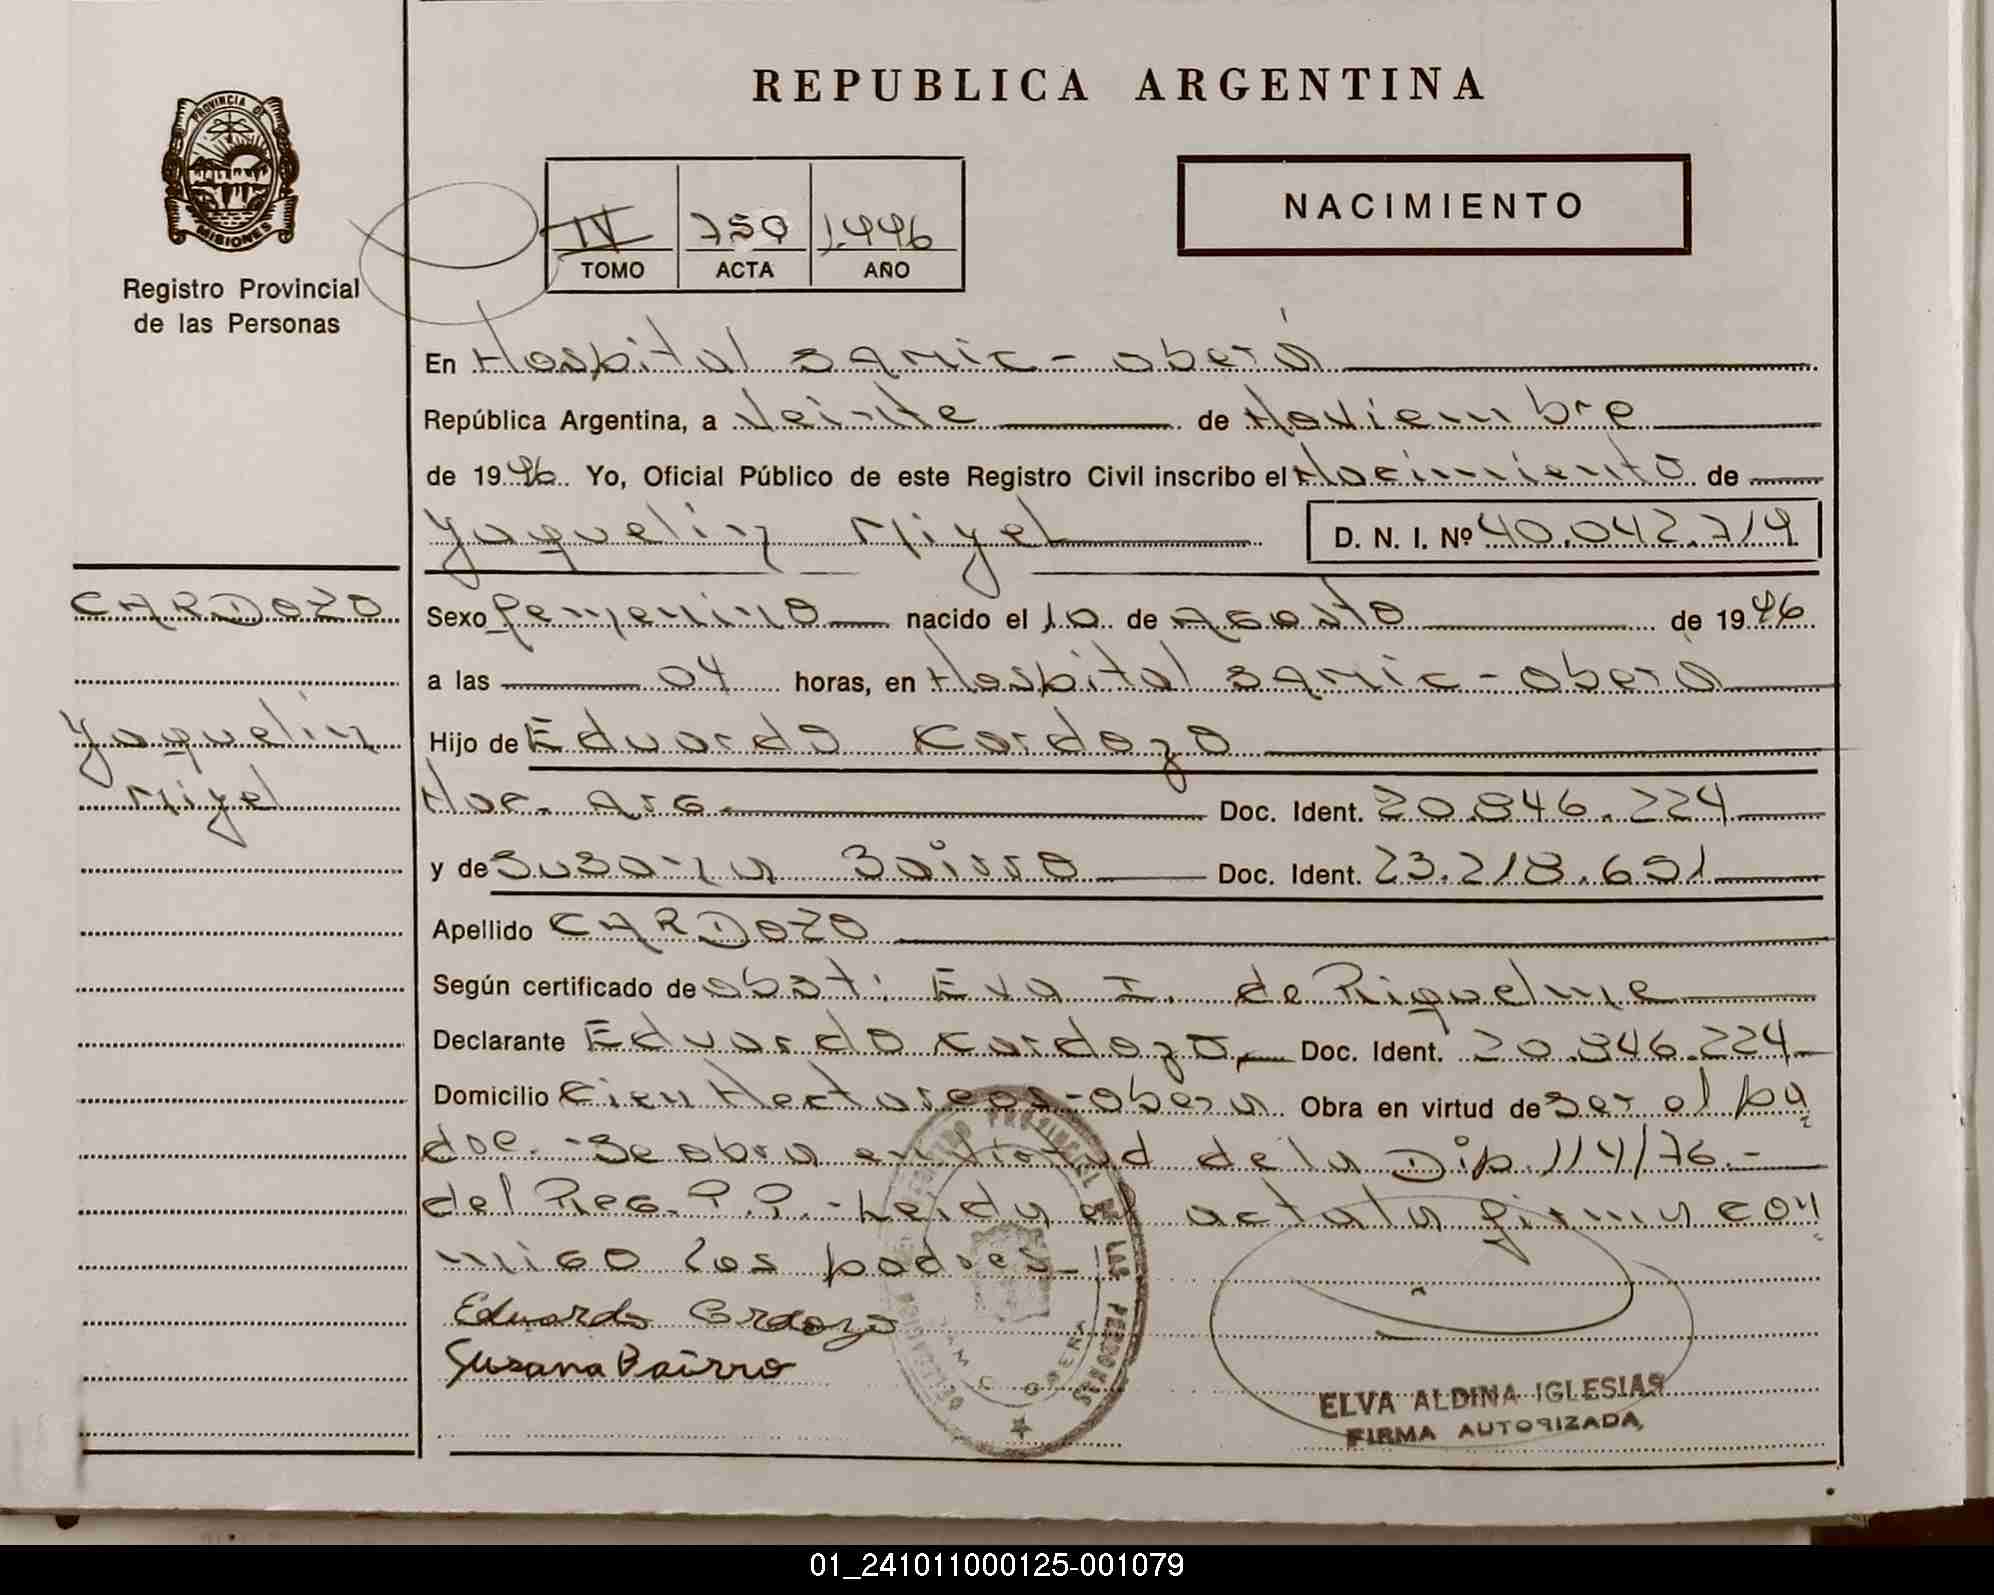 REPUBLICA ARGENTINA
PROVINCIA DE
MISIONES
Registro Provincial
de las Personas
IV 750 1.996
TOMO ACTA AÑO
NACIMIENTO
En Hospital SAMIC - Oberá
República Argentina, a Veinte de Noviembre
de 1996 Yo, Oficial Público de este Registro Civil inscribo el Nacimiento de
Yaquelin Miyel D. N. I. Nº 40.042.719
CARDOZO
Yaquelin
Miyel
Sexo femenino nacido el 10 de Agosto de 1996
a las 04 horas, en Hospital SAMIC - Oberá
Hijo de Eduardo Cardozo
Nac. Arg. Doc. Ident. 20.846.224
y de Susana Bairro Doc. Ident. 23.218.651
Apellido CARDOZO
Según certificado de obst: Eva I. de Riquelme
Declarante Eduardo Cardozo Doc. Ident. 20.846.224
Domicilio Cien Hectareas - Obera Obra en virtud de ser el pa
dre. - Se obra en virtud de la Dip. 114/76. -
del Reg. P.P. - Leida el acta la firman con
migo los padres -
Eduardo Cardozo
Susana Bairro
REGISTRO PROVINCIAL DE LAS PERSONAS
DELEGACION
SAMIC OBERA
ELVA ALDINA IGLESIAS
FIRMA AUTORIZADA
01_241011000125-001079